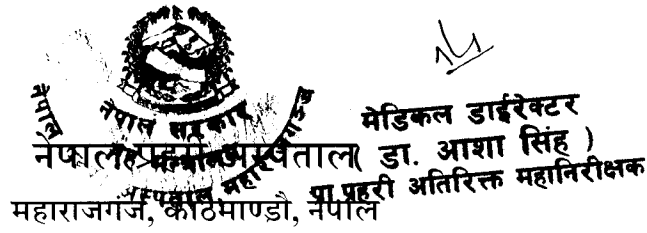 नेपाल सरकार
मेडिकल डाईरेक्टर
नेपाल प्रहरी अस्पताल
( डा. आशा सिंह )
प्रहरी अतिरिक्त महानिरीक्षक
महाराजगंज, काठमाण्डौ, नेपाल